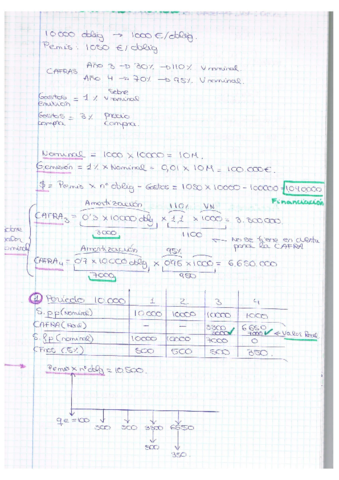 10.000 oblig → 1000 €/oblig.
Pemis: 1050 €/oblig
CAFRAS Año 3 → 30% → 110% V nominal
Año 4 → 70% → 95% V nominal.
Gastos emisión = 1% sobre V nominal
Gastos compra = 3% precio compra.
Nominal = 1000 × 10000 = 10M.
Gemisión = 1% × Nominal = 0,01 × 10M = 100.000€.
$ = Pemis × nº oblig - Gastos = 1050 × 10000 - 100000 = 10400000
Financiación
Amortización 110% VN
CAFRA3 = 0'3 × 10000 oblig × 1,1 × 1000 = 3.300.000
3000 1100
No se tiene en cuenta para las CAFRA
Amortización 95%
CAFRA4 = 0'7 × 10.000 oblig × 0'95 × 1000 = 6.650.000
7000 950
Periodo 10.000 1 2 3 4
S. pp (nominal) 10000 10000 10000
CAFRA (Fond) - - 3300 6650
3000 7000 ← Valor
S. fp (nominal) 10000 10000 7000 0
CFies (5%) 500 500 500 350
Pemis × nº oblig = 10.500
ge = 100 500 500 3300 6650
500 350